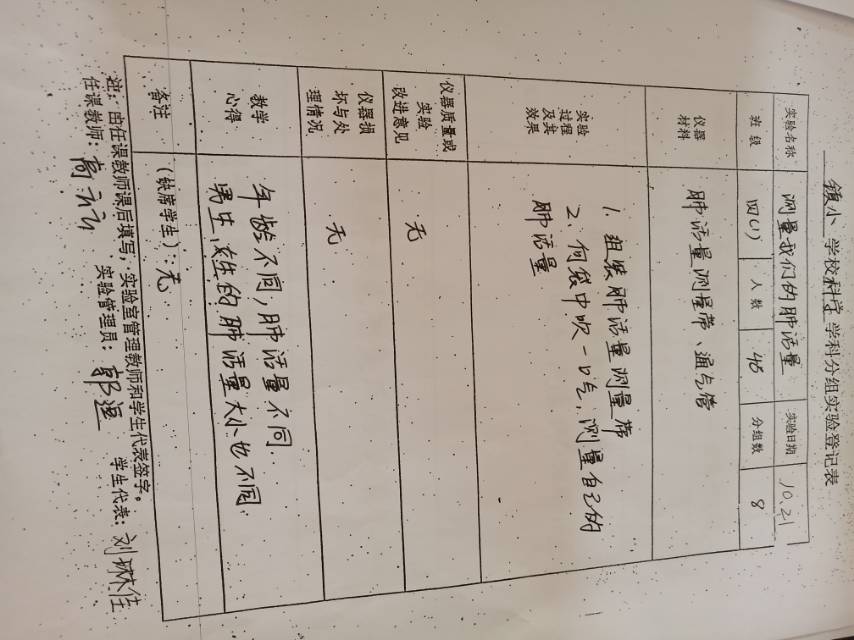 镇小 学校科学学科分组实验登记表
实验名称 测量我们的肺活量 实验日期 10.21
班级 四(1) 人数 46 分组数 8
仪器
材料
肺活量测量带、通气管
实验
过程
及其
效果
1. 组装肺活量测量带
2、向袋中吹一口气,测量自己的
肺活量
仪器质量或
实验
改进意见
无
仪器损
坏与处
理情况
无
教学
心得
年龄不同,肺活量不同.
男生、女生的肺活量大小也不同.
备注 (缺席学生):无
注:由任课教师课后填写,实验室管理教师和学生代表签字。
任课教师: 实验管理员: 学生代表:刘琳佳